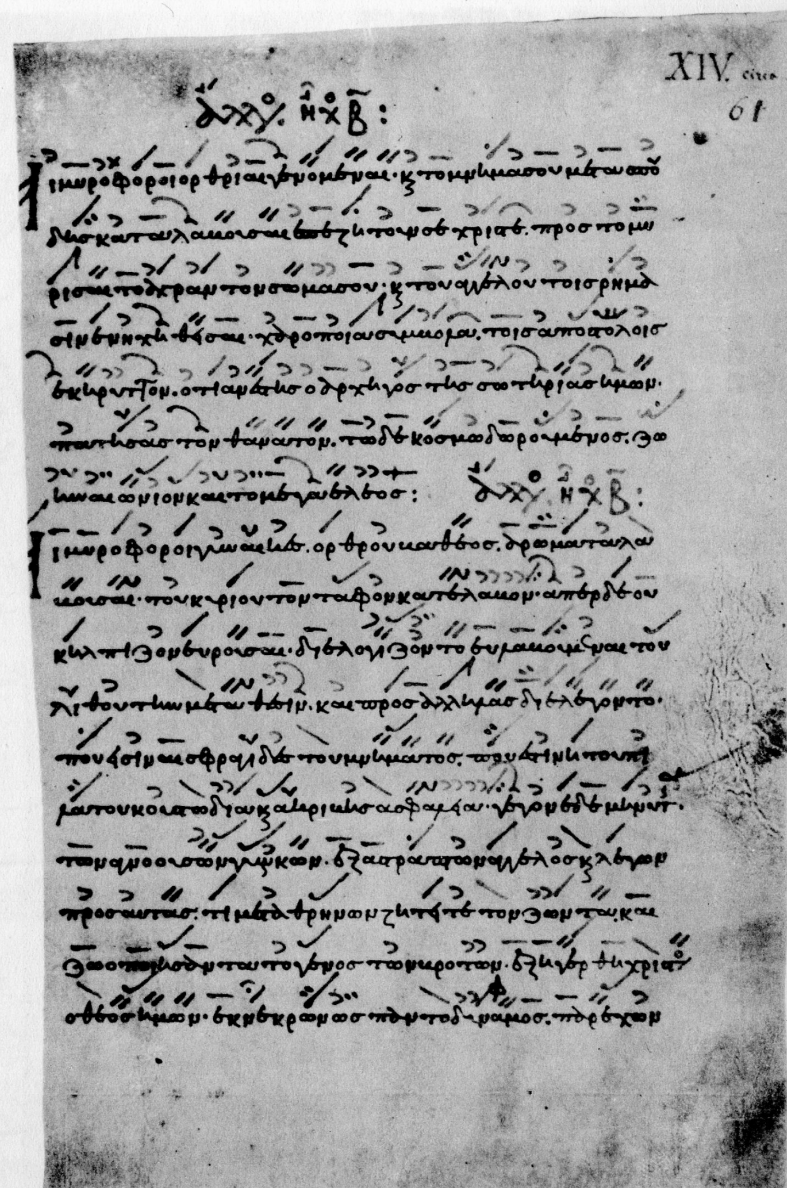 XIV. circa
61
ἄλλο ἦχ β :
αι μυροφοροι ορθριαι γενομεναι· κ το μνημα σου μετα σπου
δης καταλαμουσαι επεζητουν σε χριστε. προς το μυ
ρισαι το αχραντον σωμα σου· κ του αγγελου τοις ρημα
σιν ενηχηθεισαι· χαροποια συμμολα. τοις αποστολοις
εκηρυττον. οτι ανεστη ο αρχηγος της σωτηριας ημων·
πατησας τον θανατον. τω δε κοσμω δωρουμενος. ζω
ην αιωνιον και το μεγα ελεος : ἄλλο ἦχ β :
αι μυροφοροι γυναικες. ορθρου βαθεος. αρωματα λα
μουσαι· του κυριου τον ταφον κατελαμον· απερ δε ου
κ ηλπιζον ευρουσαι· διελογιζοντο ευλαμουμεναι του
λιθου την μεταθεσιν. και προς αλληλας διελεγοντο·
που εισιν αι σφραγιδες του μνηματος. που εστιν η του πι
λατου κουστωδια κ ακριβης ασφαλεια· γεγονε δε μηνυτ.
των αγνοουσων γυναικων· εξαστραπτων αγγελος κ λεγων
προς αυτας. τι μετα θρηνων ζητειτε τον ζωντα. και
ζωοποιησαντα το γενος των βροτων. εξηγερθη χριστος
ο θεος ημων· εκ νεκρων ως παντοδυναμος. παρεχων